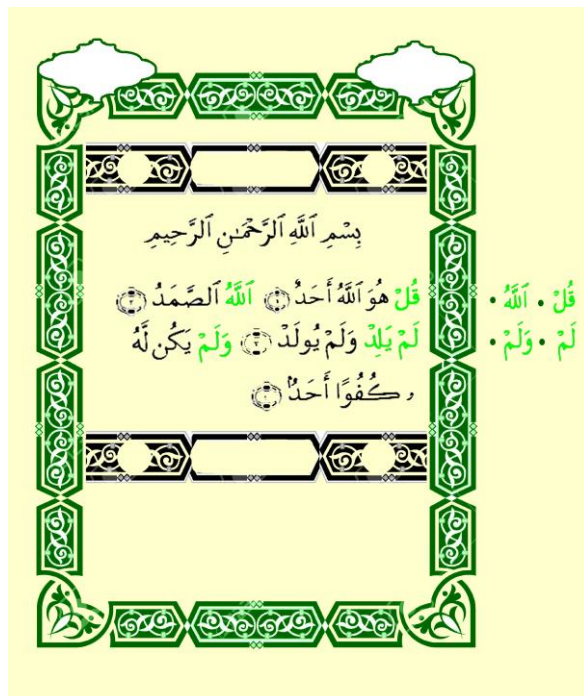 بِسْمِ ٱللَّهِ ٱلرَّحْمَٰنِ ٱلرَّحِيمِ
قُلْ هُوَ ٱللَّهُ أَحَدٌ ١ ٱللَّهُ ٱلصَّمَدُ ٢
لَمْ يَلِدْ وَلَمْ يُولَدْ ٣ وَلَمْ يَكُن لَّهُ
ۥ كُفُوًا أَحَدٌۢ
قُلْ • ٱللَّهُ •
لَمْ • وَلَمْ •